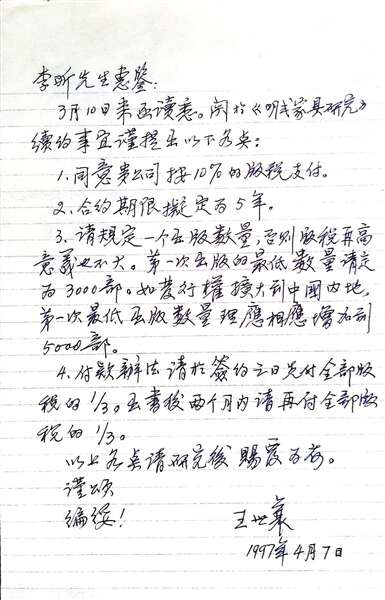 李昕先生惠鉴：
3月10日来函读悉。関於《明式家具研究》
續约事宜谨提出以下各点：
1.同意贵公司按10%的版税支付。
2.合约期限擬定为5年。
3.请规定一个出版数量，否则版税再高
意義也不大。第一次出版的最低数量请定
为3000部。如发行權擴大到中國内地，
第一次最低出版数量理應相應增加到
5000部。
4.付款辦法请於簽约之日先付全部版
税的1/3。出書後两个月内请再付全部版
税的1/3。
以上各点请研究後賜覆为荷。
谨颂
编绥！
王世襄
1997年4月7日